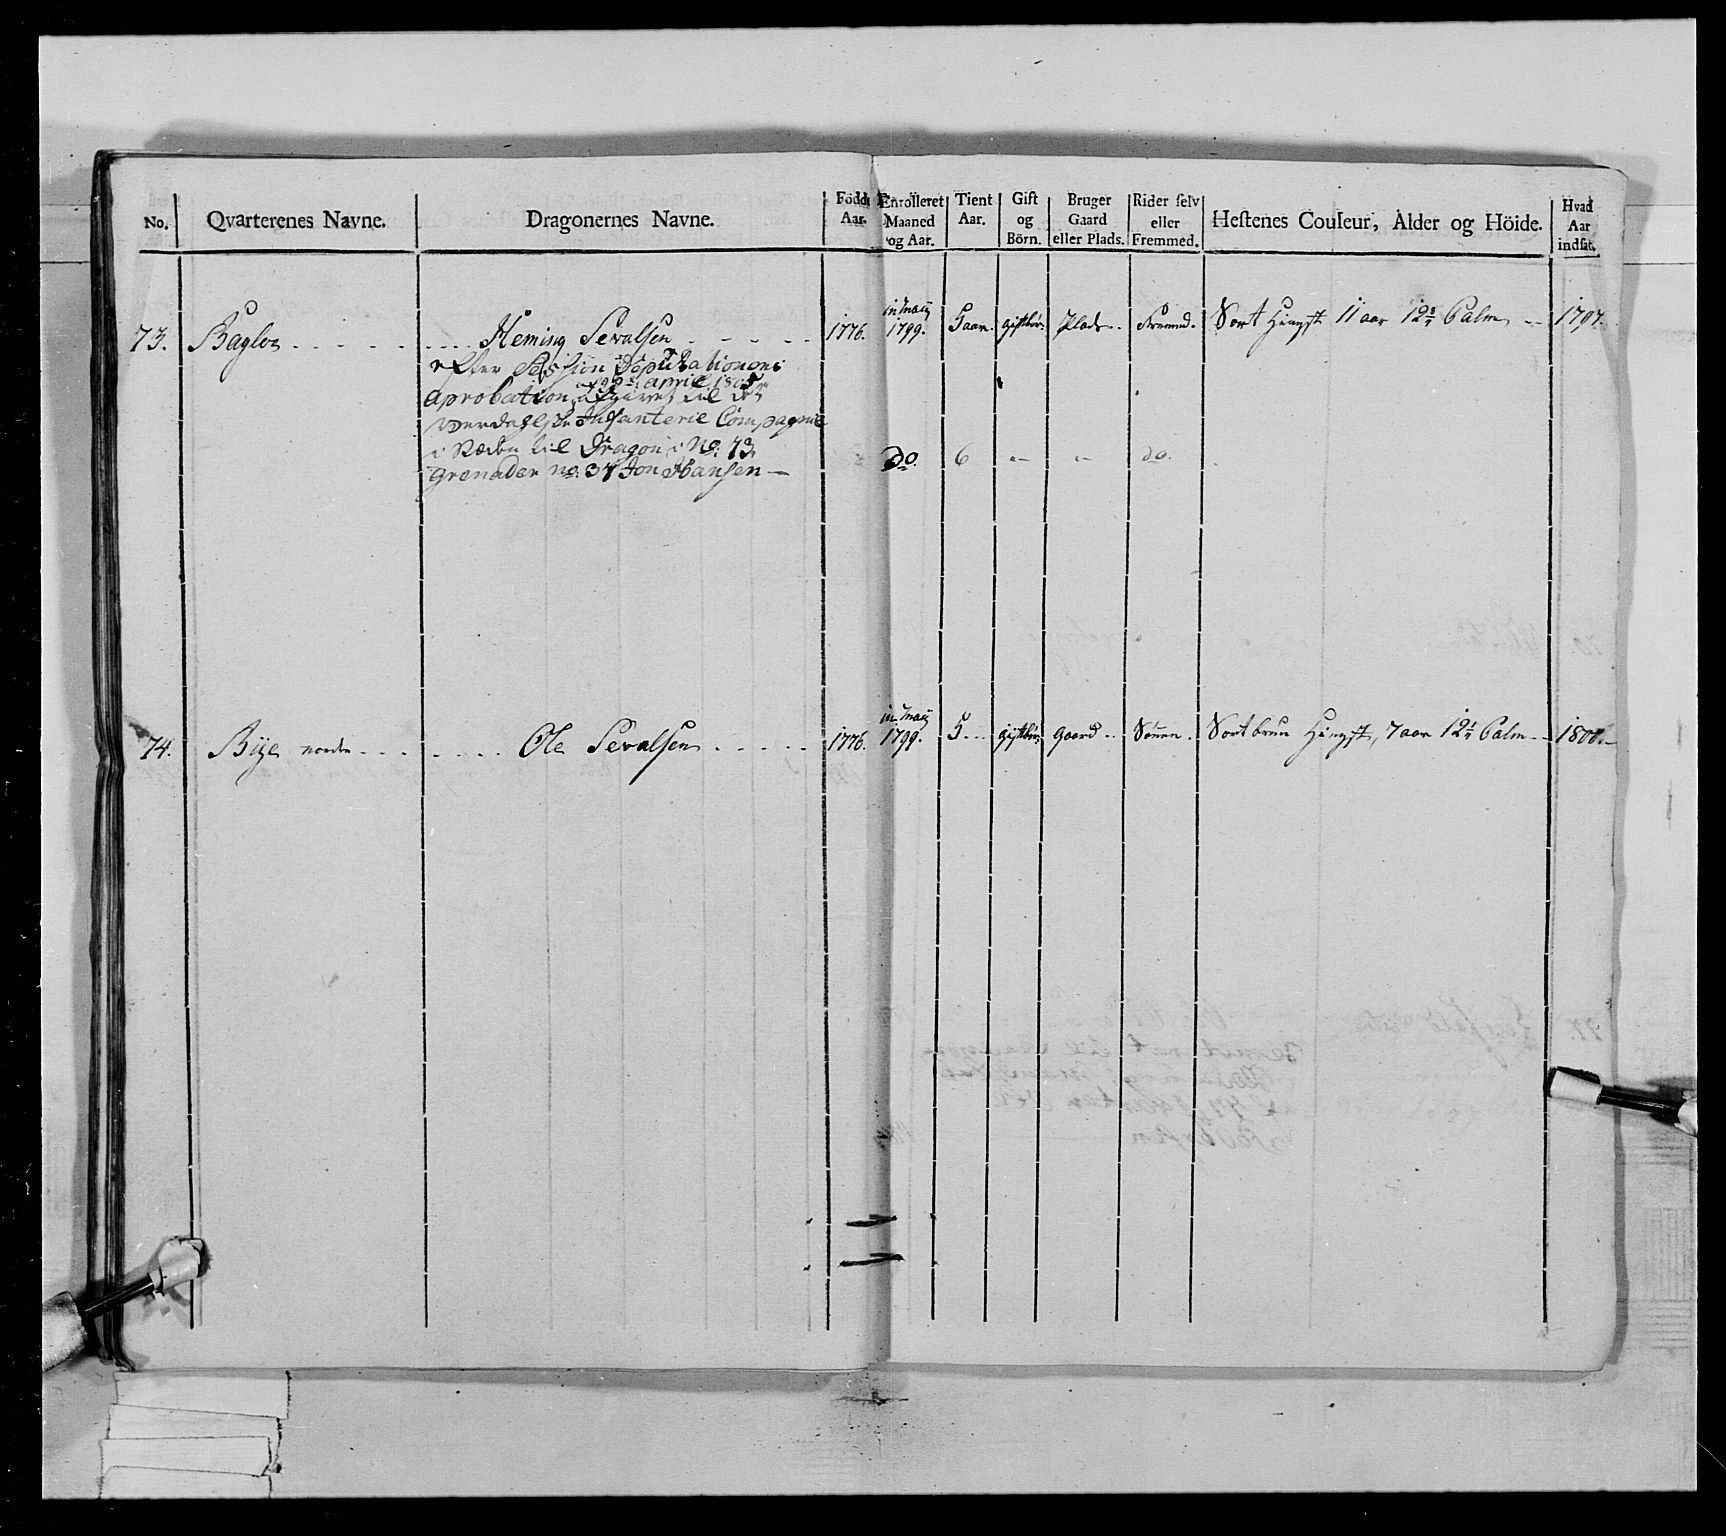 No. Qvarterenes Navne. Dragonernes Navne. Födde Aar. Enrolleret Maaned og Aar. Tient Aar. Gift og Börn. Bruger Gaard eller Plads. Rider selv eller Fremmed. Hestenes Couleur, Alder og Höide. Hvad Aar indsat.
73. Bagloe . . . . . . . . . Heming Sevalsen . . . . . 1776. in Maÿ 1799. 5 aar. gift Plads. Fremmed. Sort Hingst 11 aar 12 3/4 Palm 1797.
efter Session Deputationens
aprobation af 22de april 1805
afgivet til det
Werdahlske Infanterie Compagnie
i Stæden til Dragon i No: 73
Grenader No: 37 Jon Hansen — do. 6 " " do.
74. Bÿe nordre . . . . . . . Ole Sevalsen . . . . . 1776. in Maÿ 1799. 5 . . gift gaard . . Sort brun Hingst, 7 aar 12 1/4 Palm — 1800.